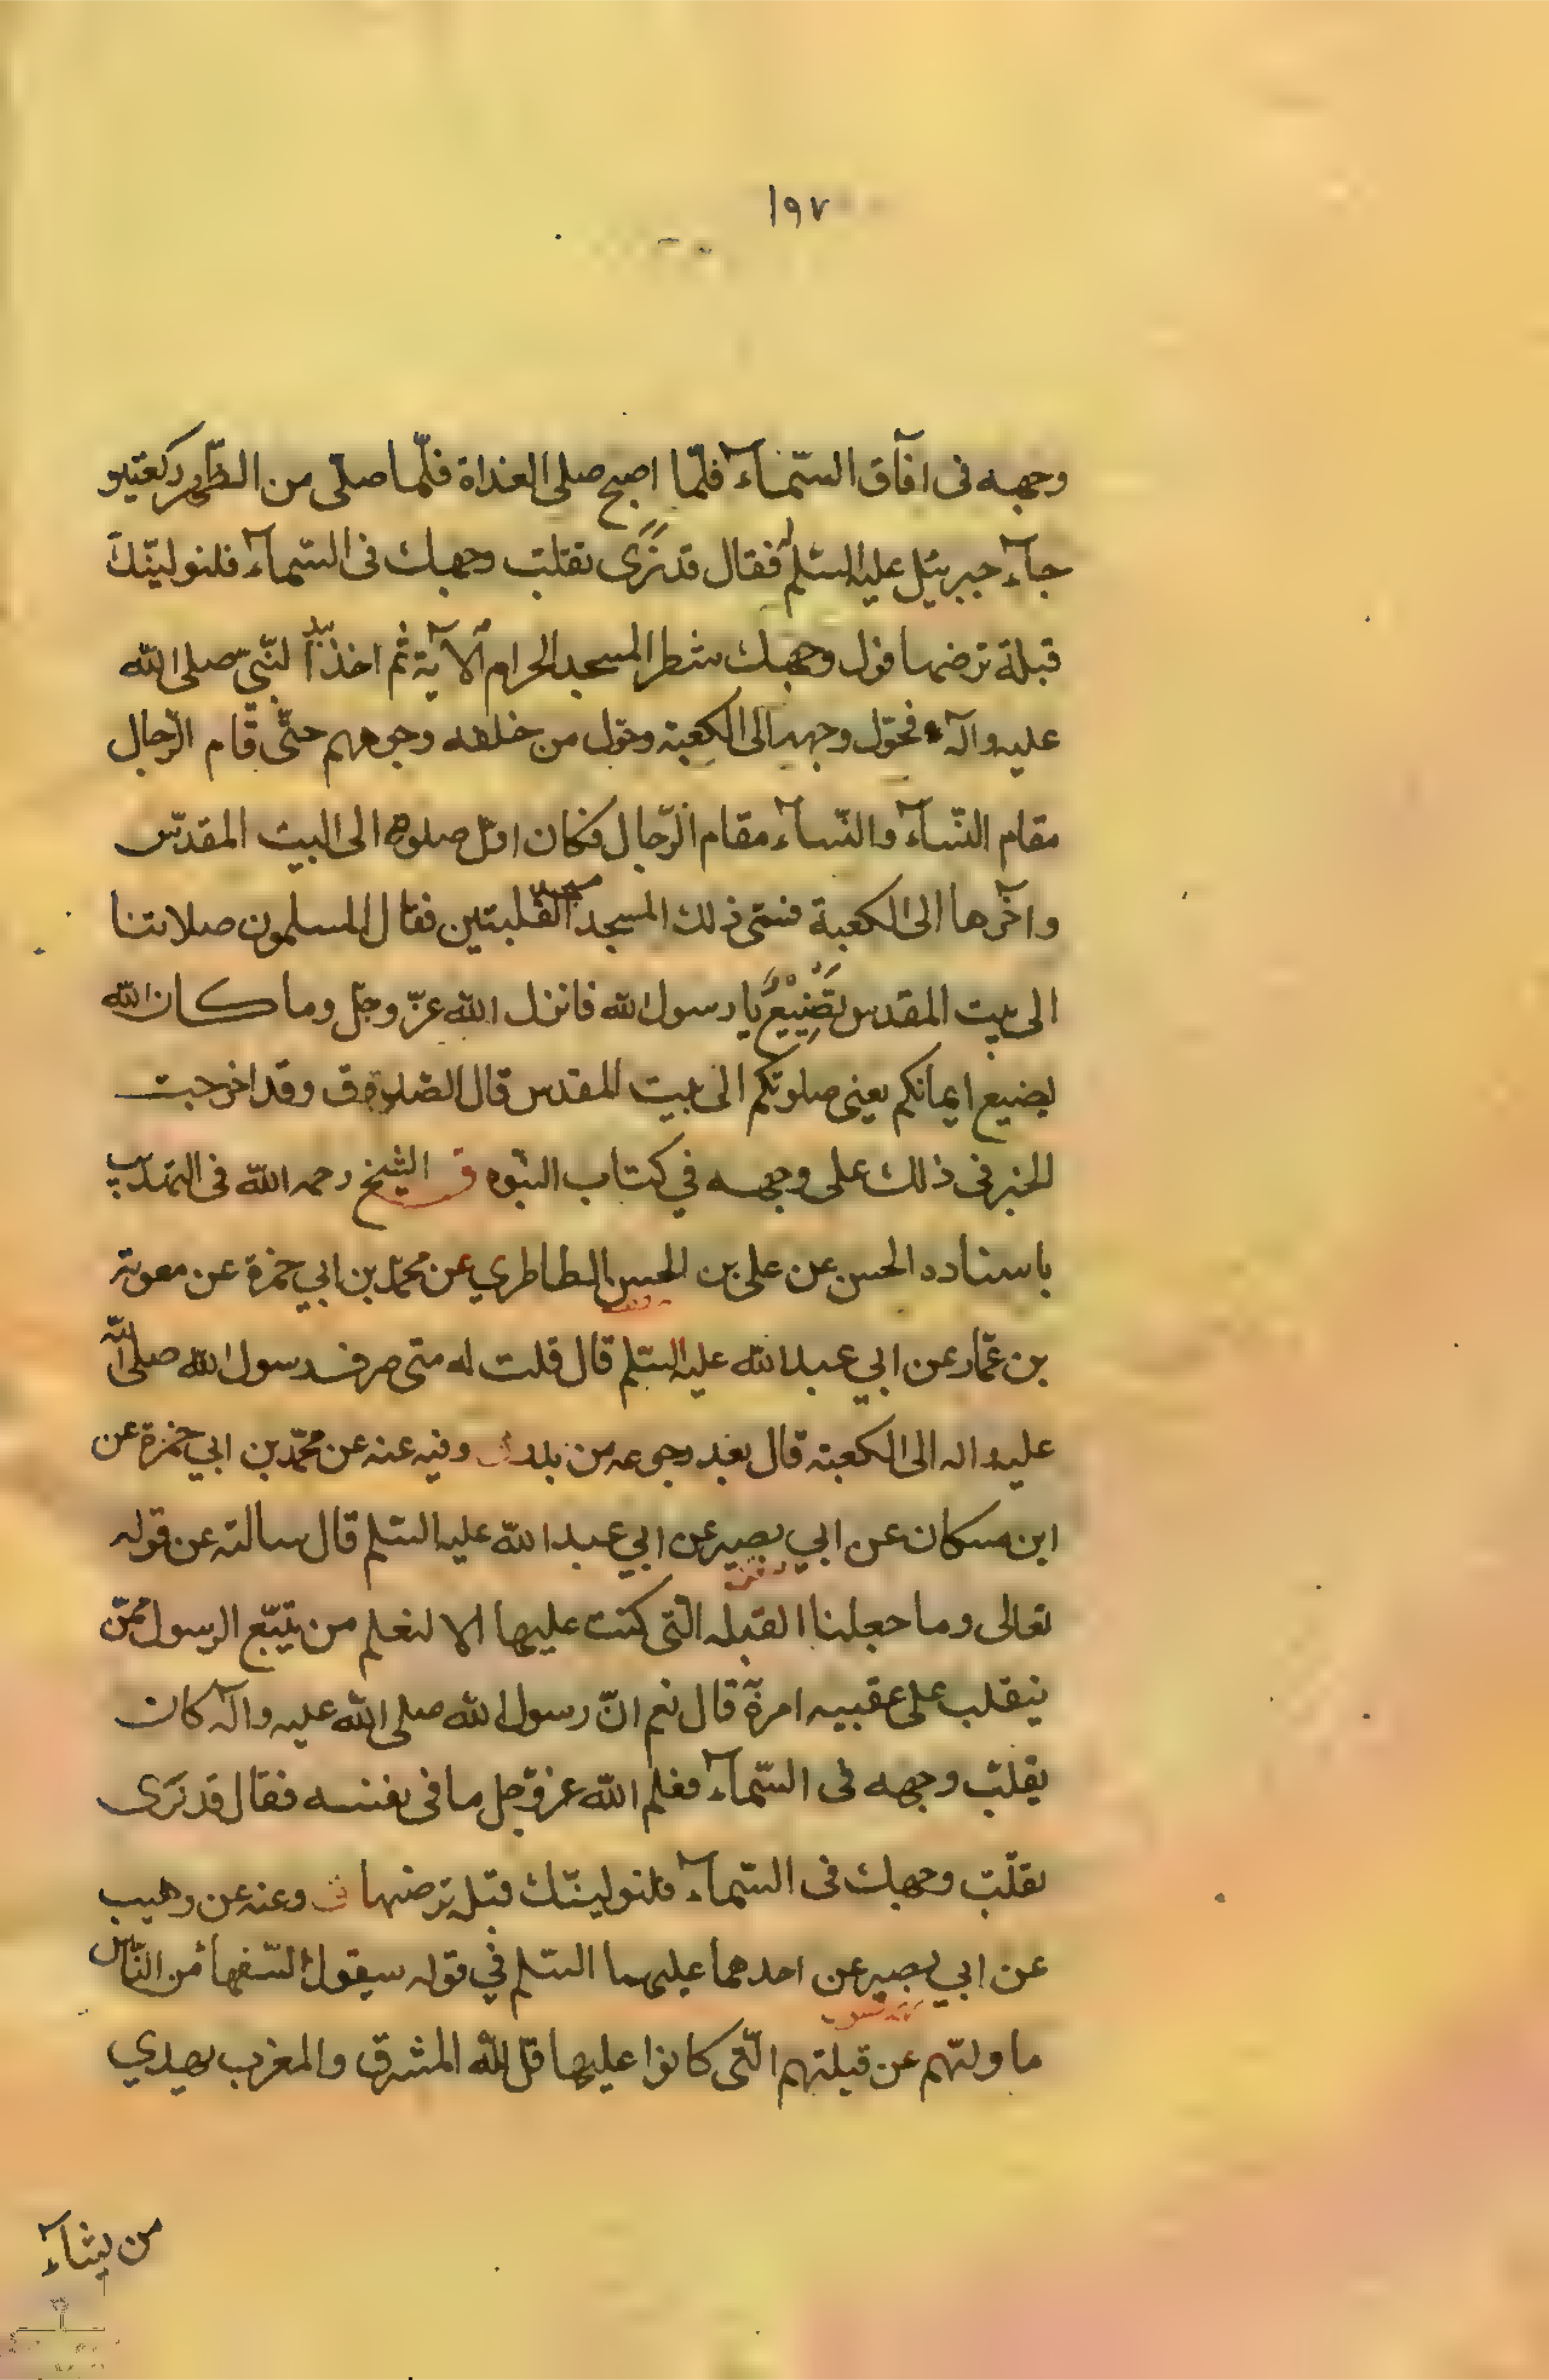 ١٩٧
وجهه فى افآق السّمآء فلمّا اصبح صلى الغداة فلمّا صلّى من الظّهر ركعتين
جآء جبرئيل عليه السّلم فقال قد نرى تقلب وجهك فى السّمآء فلنولينّك
قبلة ترضها فول وجهك شطر المسجد الحرام الآية ثم اخذ بيد النّبيّ صلى الله
عليه وآله فحوّل وجهه الى الكعبة وحول من خلفه وجوههم حتّى قام الرّجال
مقام النّسآء والنّسآء مقام الرّجال فكان اوّل صلوته الى البيت المقدّس
واخرها الى الكعبة فسمّى ذلك المسجد مسجد القبلتين فقال المسلمون صلاتنا
الى بيت المقدس تضييع يا رسول الله فانزل الله عزّ وجلّ وما كان الله
ليضيع ايمانكم يعنى صلوتكم الى بيت المقدس قال الصّدوق وقد اخرجت
الخبر فى ذلك على وجهه في كتاب النبّوه ق الشيخ رحمه الله فى التهذيب
باسناده الحسن عن على بن الحسن الطاطري عن محمّد بن ابي حمزة عن معوية
بن عمّار عن ابي عبدالله عليه السّلم قال قلت له متى صرف رسول الله صلى الله
عليه واله الى الكعبة قال بعد رجوعه من بدر وفيه عنه عن محمّد بن ابي حمزة عن
ابن مسكان عن ابي بصير عن ابي عبد الله عليه السّلم قال سالته عن قوله
تعالى وما جعلنا القبله الّتى كنت عليها الا لنعلم من يتّبع الرسول ممّن
ينقلب على عقبيه امره قال نعم انّ رسول الله صلى الله عليه وآله كان
يقلّب وجهه فى السّمآء فعلم الله عزّوجل ما فى نفسه فقال قد نرى
تقلّب وجهك فى السّمآء فلنولينّك قبلة ترضها وعنه عن وهيب
عن ابي بصير عن احدهما عليهما السّلم في قوله سيقول السّفهآء من النّاس
ما ولّيهم عن قبلتهم الّتى كانوا عليها قل لله المشرق والمغرب يهدي
من يشآء